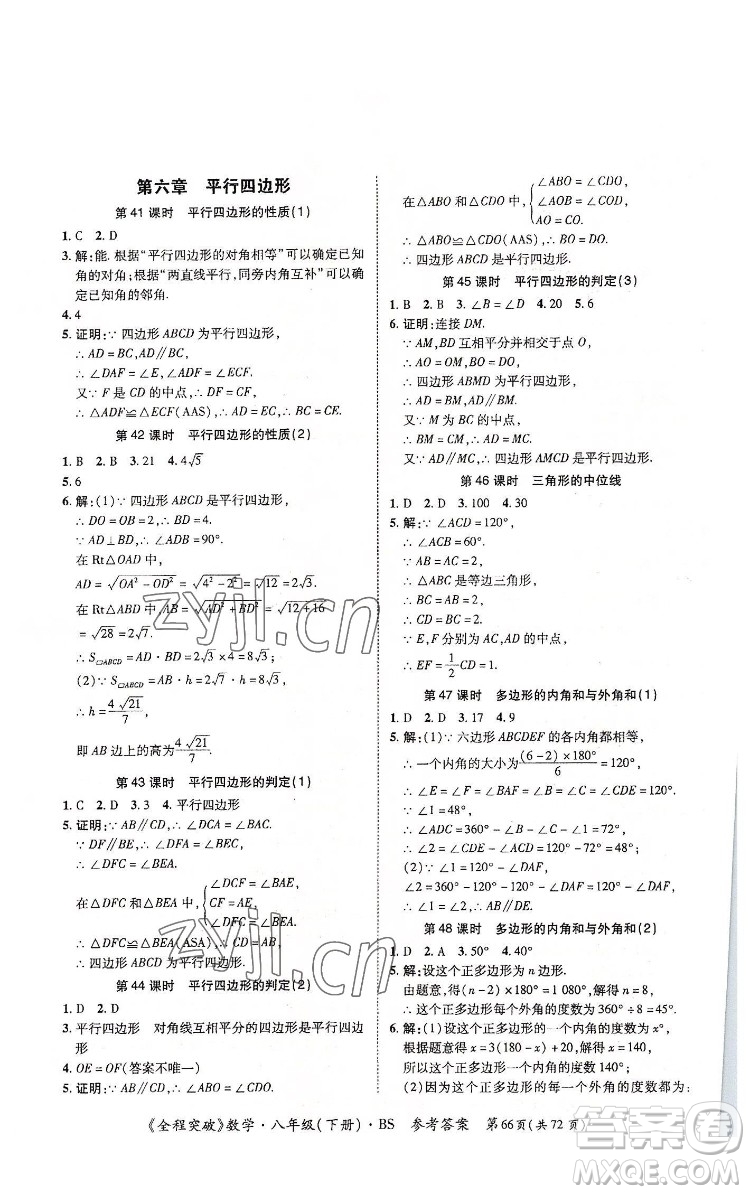 第六章 平行四边形
第 41 课时 平行四边形的性质(1)
1. C 2. D
3. 解:能. 根据“平行四边形的对角相等”可以确定已知
角的对角;根据“两直线平行,同旁内角互补”可以确
定已知角的邻角.
4. 4
5. 证明:∵ 四边形 ABCD 为平行四边形,
∴ AD = BC,AD∥BC,
∴ ∠DAF = ∠E,∠ADF = ∠ECF.
又∵ F 是 CD 的中点,∴ DF = CF,
∴ △ADF≌△ECF(AAS),∴ AD = EC,∴ BC = EC.
第 42 课时 平行四边形的性质(2)
1. B 2. B 3. 21 4. 4√5
5. 6
6. 解:(1)∵ 四边形 ABCD 是平行四边形,
∴ DO = OB = 2,∴ BD = 4.
∵ AD⊥BD,∴ ∠ADB = 90°.
在 Rt△OAD 中,
AD = √(OA² - OD²) = √(4² - 2²) = √12 = 2√3.
在 Rt△ABD 中,AB = √(AD² + BD²) = √(12 + 16)
= √28 = 2√7,
∴ S▱ABCD = AD · BD = 2√3 × 4 = 8√3;
(2)∵ S▱ABCD = AB · h = 2√7 · h = 8√3,
∴ h = 4√21/7,
即 AB 边上的高为 4√21/7.
第 43 课时 平行四边形的判定(1)
1. C 2. D 3. 3 4. 平行四边形
5. 证明:∵ AB∥CD,∴ ∠DCA = ∠BAC.
∵ DF∥BE,∴ ∠DFA = ∠BEC,
∴ ∠DFC = ∠BEA.
在△DFC 和△BEA 中, { ∠DCF = ∠BAE,
CF = AE,
∠DFC = ∠BEA.
∴ △DFC≌△BEA(ASA),∴ CD = AB.
∴ 四边形 ABCD 是平行四边形.
第 44 课时 平行四边形的判定(2)
1. D 2. D
3. 平行四边形 对角线互相平分的四边形是平行四边
形
4. OE = OF(答案不唯一)
5. 证明:∵ AB∥CD,∴ ∠ABO = ∠CDO.
在△ABO 和△CDO 中, { ∠ABO = ∠CDO,
∠AOB = ∠COD,
AO = CO.
∴ △ABO≌△CDO(AAS),∴ AB = CD.
∴ 四边形 ABCD 是平行四边形.
第 45 课时 平行四边形的判定(3)
1. B 2. B 3. ∠B = ∠D 4. 20 5. 6
6. 证明:连接 DM.
∵ AM,BD 互相平分于点 O,
∴ AO = OM,BO = DO,
∴ 四边形 ABMD 为平行四边形,
∴ BM = AD,BM∥AD.
又∵ M 为 BC 的中点,
∴ BM = CM,∴ AD = MC.
又∵ AD∥MC,∴ 四边形 AMCD 是平行四边形.
第 46 课时 三角形的中位线
1. D 2. D 3. 100 4. 30
5. 解:∵ ∠ACD = 120°,
∴ ∠ACB = 60°.
∵ AB = AC = 2,
∴ △ABC 是等边三角形,
∴ BC = AB = 2,
∴ CD = BC = 2.
∵ E,F 分别为 AC,AD 的中点,
∴ EF = 1/2 CD = 1.
第 47 课时 多边形的内角和与外角和(1)
1. D 2. D 3. 17 4. 9
5. 解:(1)∵ 六边形 ABCDEF 的各内角都相等,
∴ 一个内角的大小为 (6 - 2) × 180°/6 = 120°,
∴ ∠E = ∠F = ∠BAF = ∠FED = 120°.
∵ ∠1 = 48°,
∴ ∠ADC = 360° - 120° - 120° - 48° = 72°,
∴ ∠2 = ∠CDE - ∠ADC = 120° - 72° = 48°;
(2)∵ ∠1 = 120° - ∠DAF,
∠2 = 360° - 120° - 120° - ∠DAF = 120° - ∠DAF,
∴ ∠1 = ∠2,∴ AB∥DE.
第 48 课时 多边形的内角和与外角和(2)
1. D 2. A 3. 50° 4. 40°
5. 解:设这个正多边形为 n 边形.
由题意,得(n - 2) × 180° = 1 080°,解得 n = 8,
∴ 这个正多边形每个外角的度数为 360° ÷ 8 = 45°.
6. 解:(1)设这个正多边形的一个内角的度数为 x°,
根据题意得 x = 3(180 - x) + 20,解得 x = 140,
所以这个正多边形的一个内角的度数为 140°;
(2)因为这个正多边形的一个外角的度数为
《全程突破》数学·八年级(下册)·BS 参考答案 第66页(共72页)
zyjl.cn
zyjl.cn